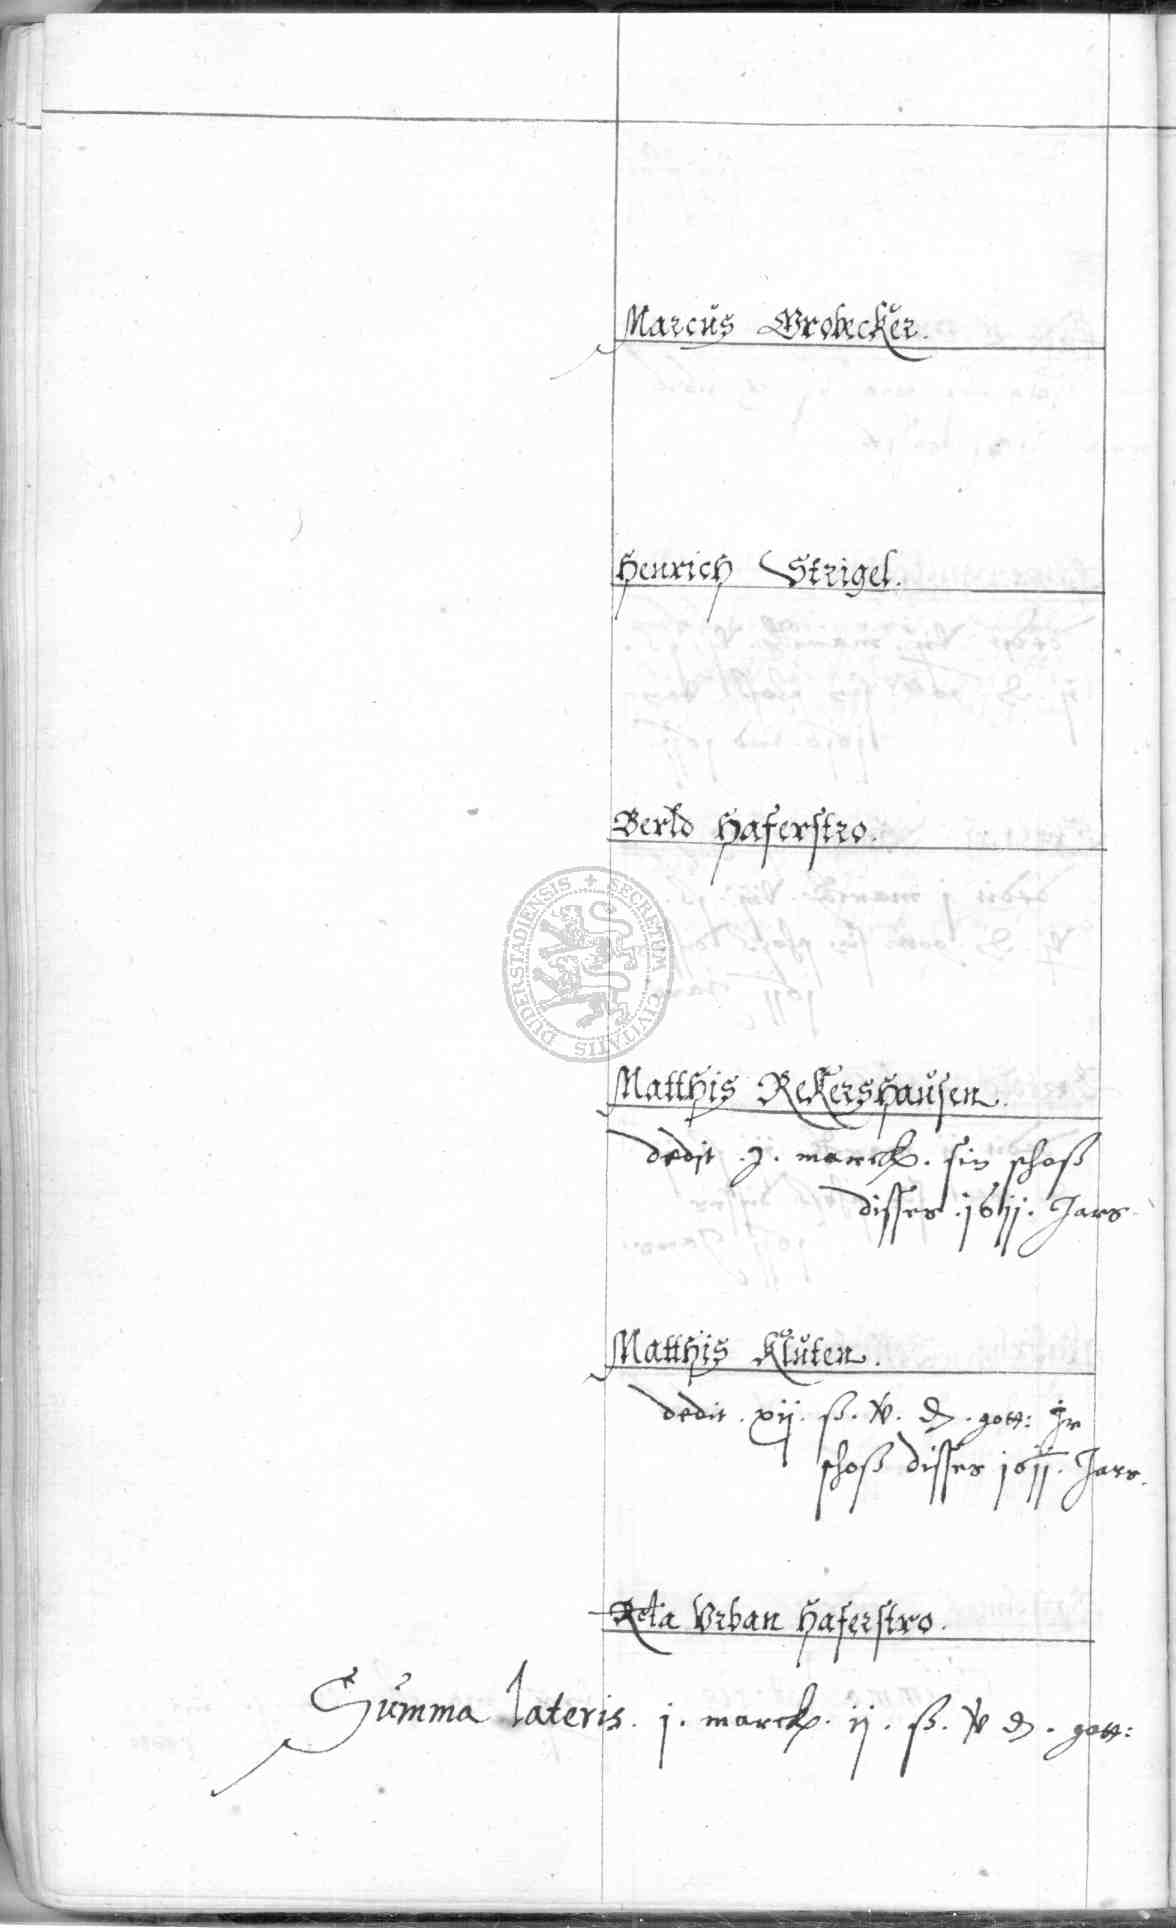 Marcus Grobecker.
Henrich Strigel.
Berld Haferstro.
SECRETUM CIVITATIS DUDERSTADIENSIS
Matthis Rekershausen.
dedit . j . marck . sin schoß
disses . 1611 . Jars
Matthis Kluten.
dedit . xij . ß . v . d . gott: Jr
schoß disses 1611 . Jars.
Reta Vrban Haferstro.
Summa lateris . j . marck . ij . ß . v d . gott: